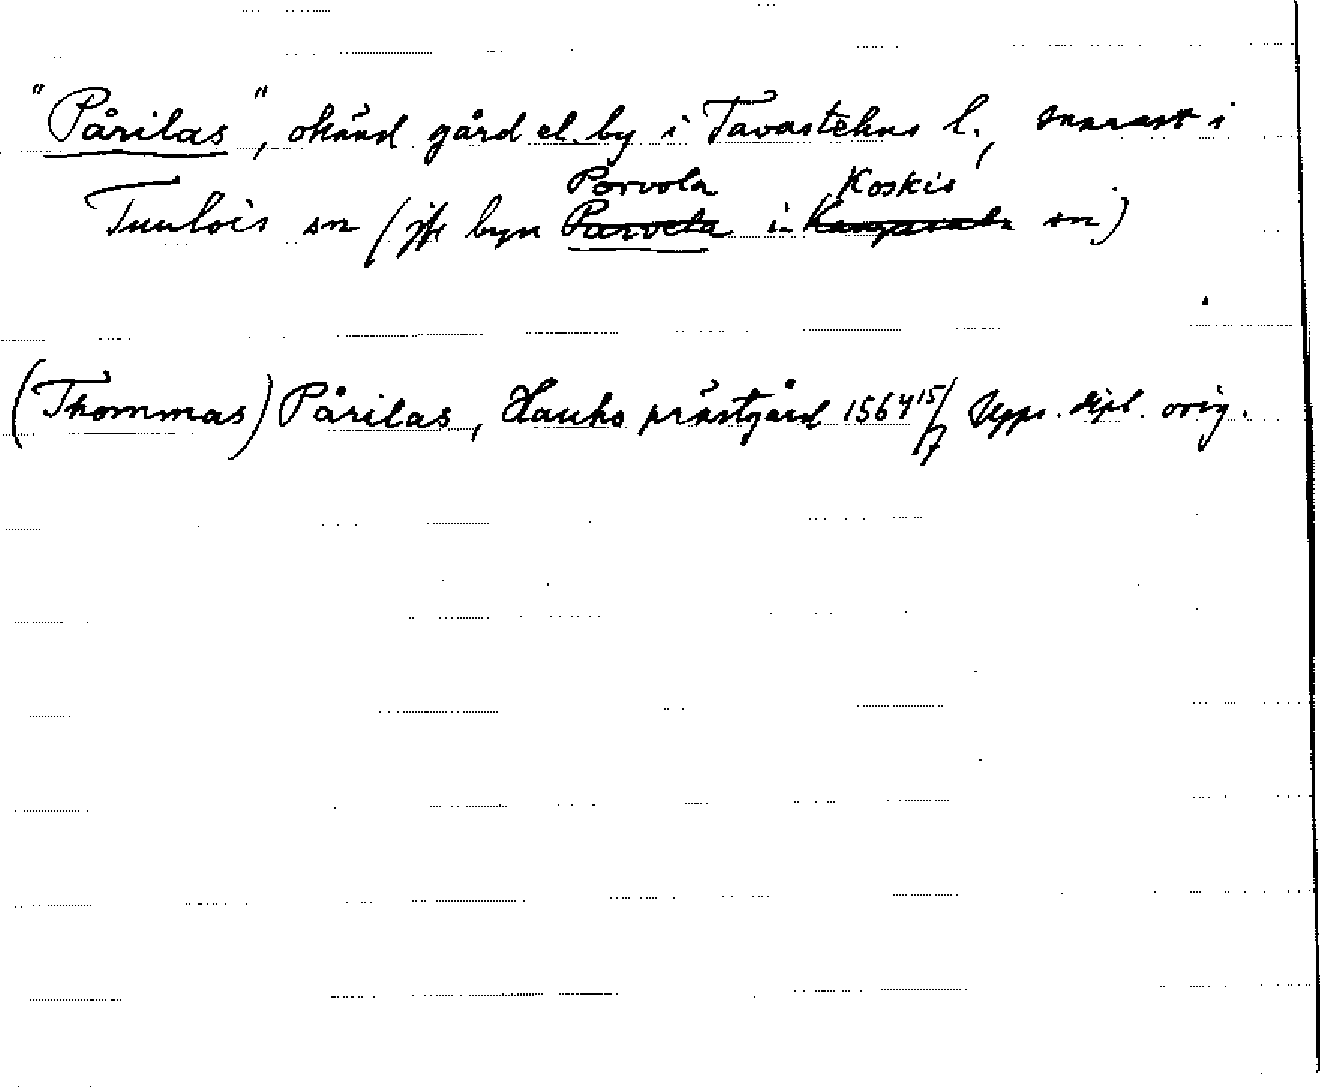 "Pårilas", okänd gård el. by i Tavastehus l., snarast i
Porvola Koskis
Tuulois sn (jfr byn Parvela i Kangasala sn)
(Thommas) Pårilas, Hauho prästgård 1564 15/7 Upps. dipl. orig.